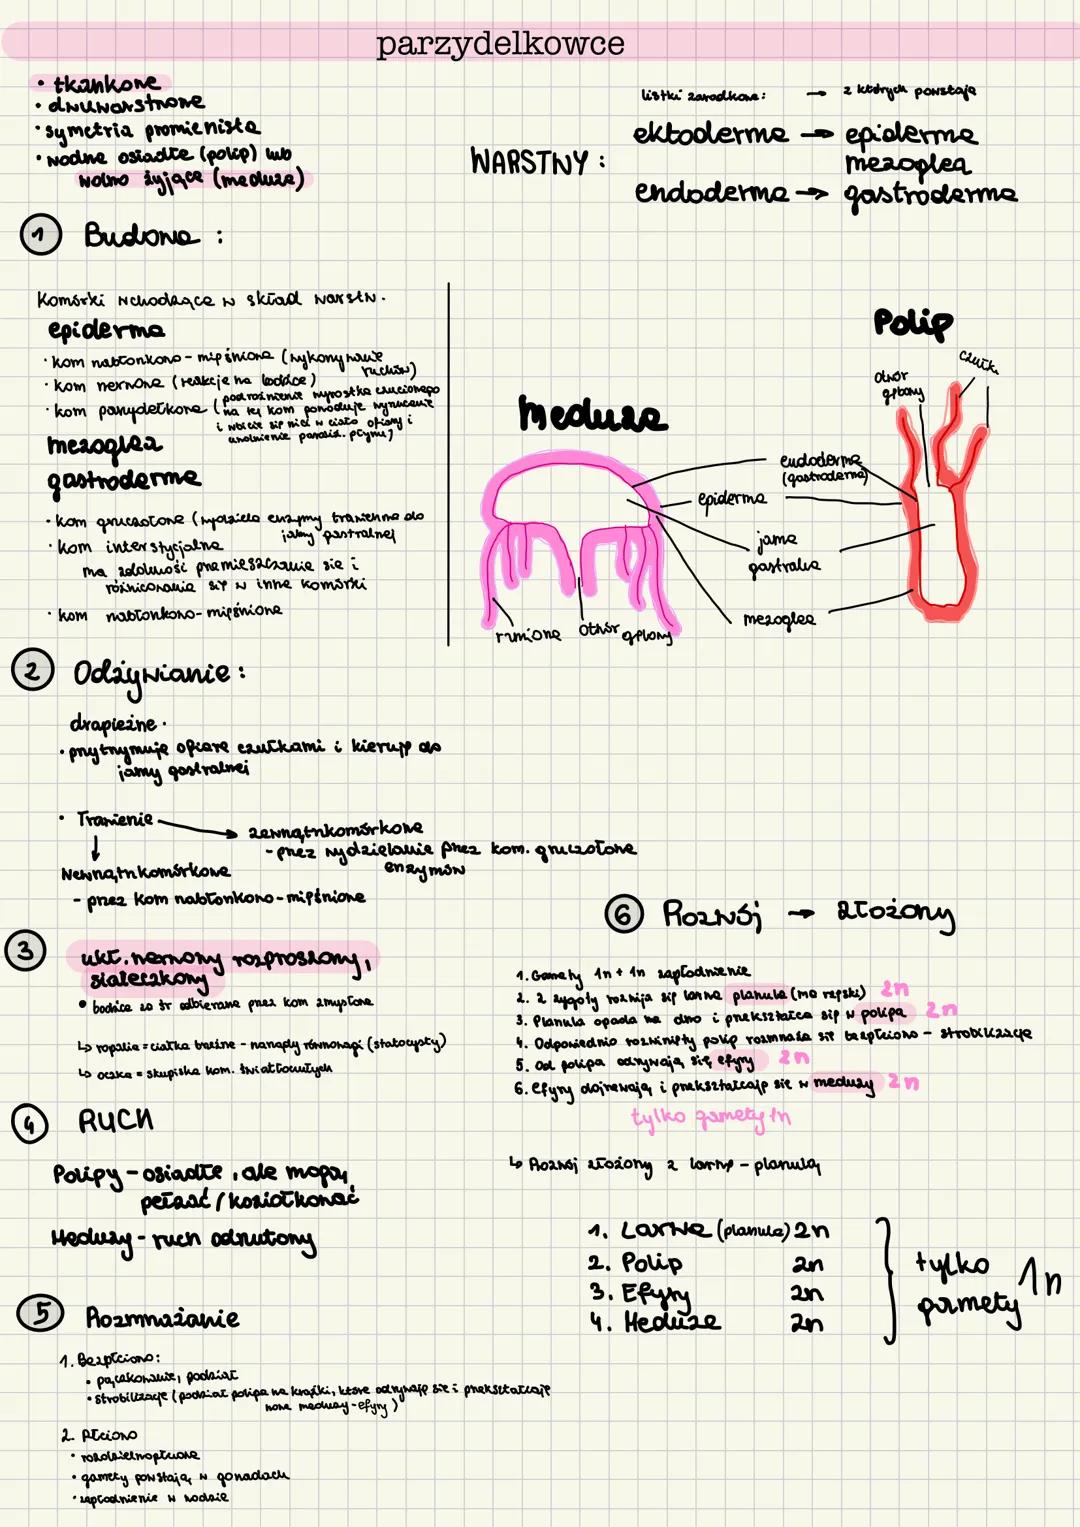 parzydelkowce
• tkankowe
• dwuwarstwowe
• symetria promienista
• wodne osiadłe (polip) lub
wolno żyjące (meduza)
listki zarodkowe: → z których powstają
WARSTWY:
ektoderma → epiderma
mezoglea
endoderma → gastroderma
1 Budowa :
Komórki wchodzące w skład warstw.
epiderma
• kom nabłonkowo - mięśniowe (wykonywanie ruchów)
• kom nerwowe (reakcje na bodźce)
• kom parzydełkowe (podrażnienie wyrostka czuciowego
na tej kom powoduje wyrzucenie
i wbicie się nici w ciało ofiary i
uwolnienie paraliż. płynu)
mezoglea
gastroderma
• kom gruczołowe (wydziela enzymy trawienne do
jamy gastralnej
• kom interstycjalne
ma zdolność przemieszczania się i
różnicowania się w inne komórki
• kom nabłonkowo - mięśniowe
Meduza
Polip
czułk.
otwór
gębowy
endoderma
(gastroderma)
epiderma
jama
gastralna
mezoglea
ramiona
otwór gębowy
2 Odżywianie :
drapieżne •
• przytrzymują ofiarę czułkami i kierują do
jamy gastralnej
• Trawienie → zewnątrzkomórkowe
- przez wydzielanie przez kom. gruczołowe
enzymów
↓
Wewnątrzkomórkowe
- przez kom nabłonkowo - mięśniowe
3 ukł. nerwowy rozproszony,
siateczkowy
• bodźce ze śr odbierane przez kom zmysłowe
↳ ropalia = ciałka brzeżne - narządy równowagi (statocysty)
↳ oczka = skupiska kom. światłoczułych
4 RUCH
Polipy - osiadłe, ale mogą
pełzać / koziołkować
Meduzy - ruch odrzutowy
5 Rozmnażanie
1. Bezpłciowo:
• pączkowanie, podział
• strobilizacje (podział polipa na krążki, które odrywają się i przekształcają
nowe meduzy - efyry)
2. Płciowo
• rozdzielnopłciowe
• gamety powstają w gonadach
• zapłodnienie w wodzie
6 Rozwój → złożony
1. Gamety 1n + 1n zapłodnienie
2. z zygoty rozwija się larwa planula (ma rzęski) 2n
3. Planula opada na dno i przekształca się w polipa 2n
4. Odpowiednio rozwinięty polip rozmnaża się bezpłciowo - strobilizacje
5. Od polipa odrywają się efyry 2n
6. Efyry dojrzewają i przekształcają się w meduzy 2n
tylko gamety 1n
↳ Rozwój złożony z larwą - planulą
1. Larwa (planula) 2n
2. Polip 2n
3. Efyry 2n
4. Meduza 2n
tylko
gamety 1n